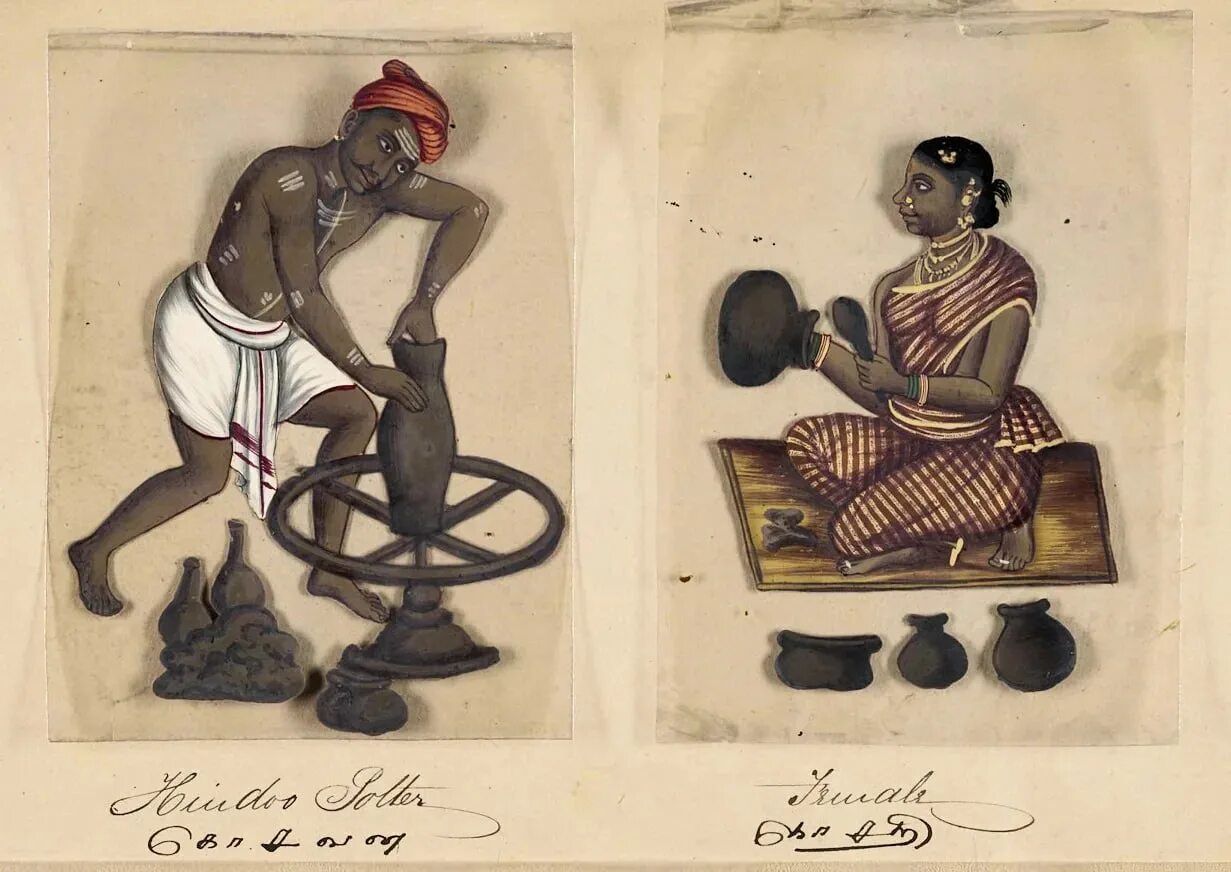 Hindoo Potter
கொசவன
Female